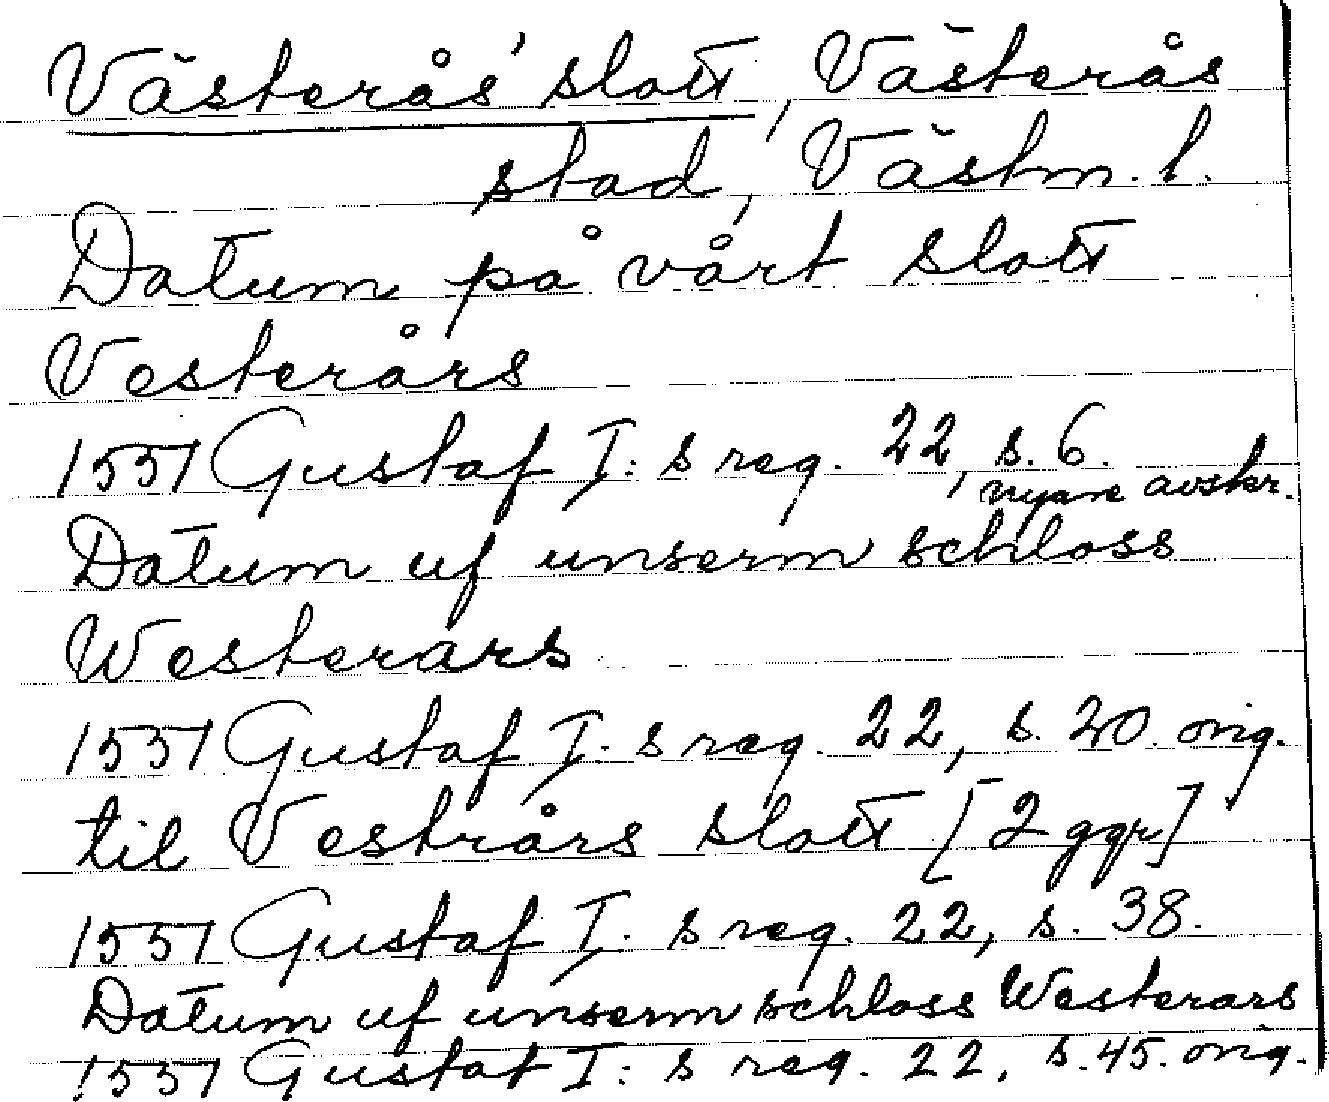 Västerås slott, Västerås
stad, Västm. l.
Datum på vårt slott
Vesterårs
1551 Gustaf I: s reg. 22, s. 6.
nyare avskr.
Datum uf unserm schloss
Westerars
1551 Gustaf I: s reg. 22, s. 20. orig.
til Vestrårs slott [2 ggr]
1551 Gustaf I: s reg. 22, s. 38.
Datum uf unserm schloss Westerars
1551 Gustaf I: s reg. 22, s. 45. orig.